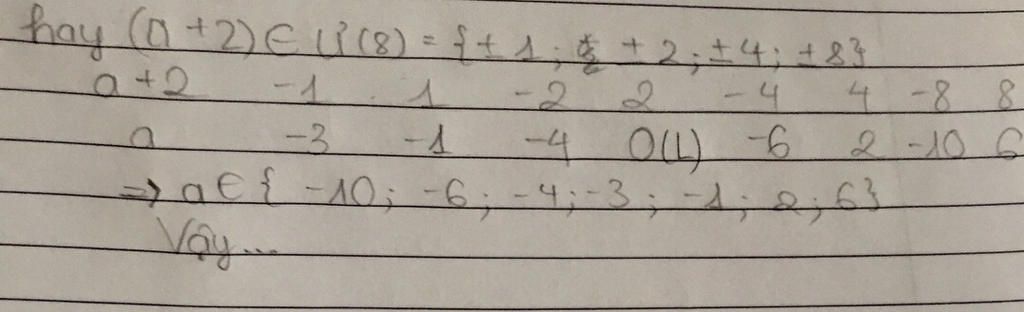 hay (a + 2) ∈ Ư(8) = {± 1; ± 2; ± 4; ± 8}
a + 2 -1 1 -2 2 -4 4 -8 8
a -3 -1 -4 0(L) -6 2 -10 6
=> a ∈ { -10; -6; -4; -3; -1; 2; 6}
Vậy...